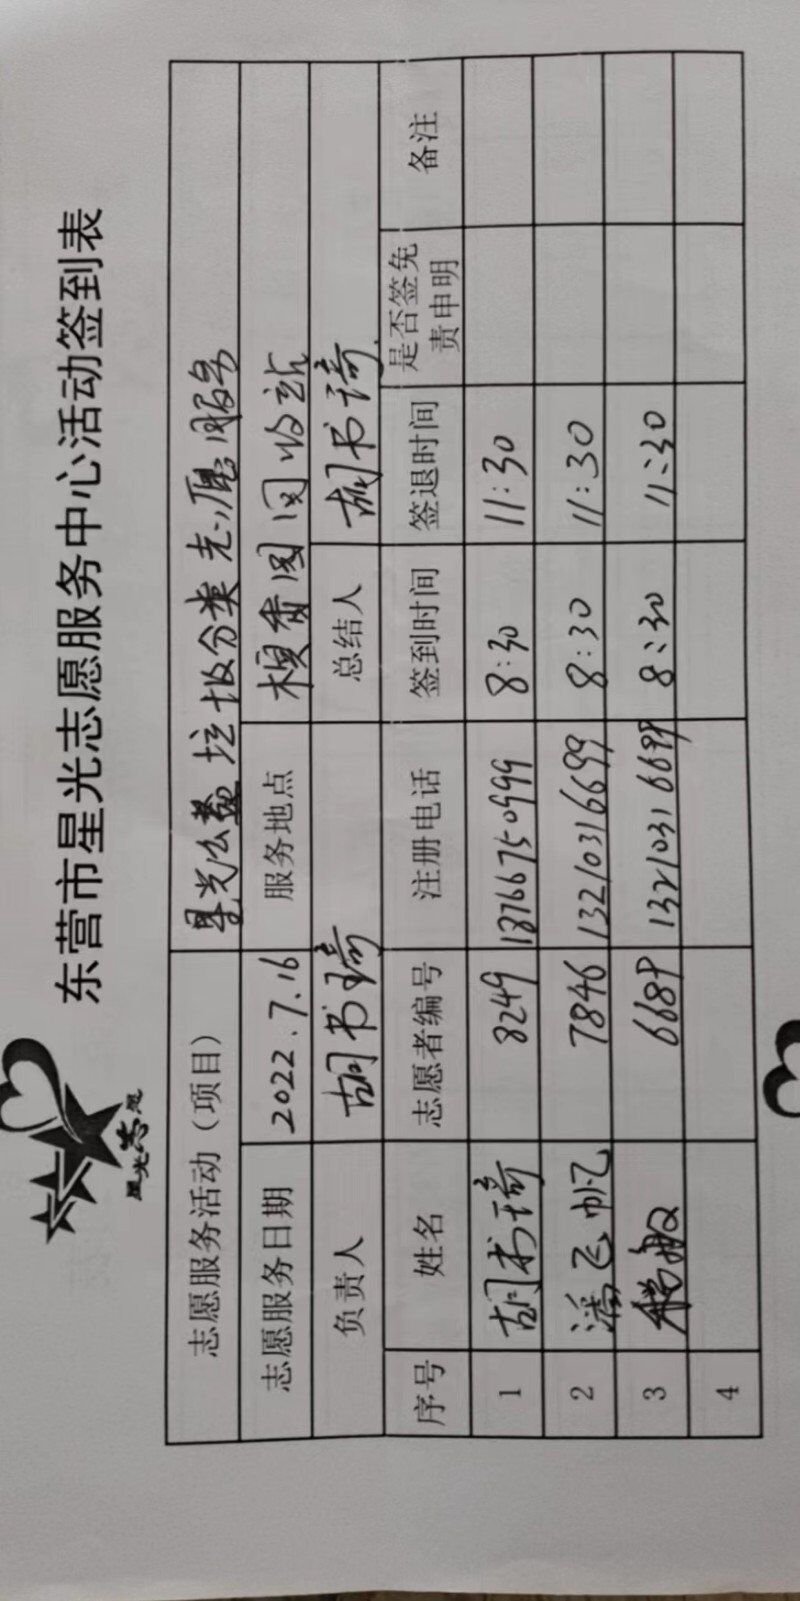 星光志愿
东营市星光志愿服务中心活动签到表
志愿服务活动（项目） 星光公益垃圾分类志愿服务
志愿服务日期 2022.7.16 服务地点 檀香园回收站
负责人 胡书琦 总结人 胡书琦
序号 姓名 志愿者编号 注册电话 签到时间 签退时间 是否签免责申明 备注
1 胡书琦 8249 18766750999 8:30 11:30
2 潘飞帆 7846 13210316699 8:30 11:30
3 敏 6689 13210316699 8:30 11:30
4